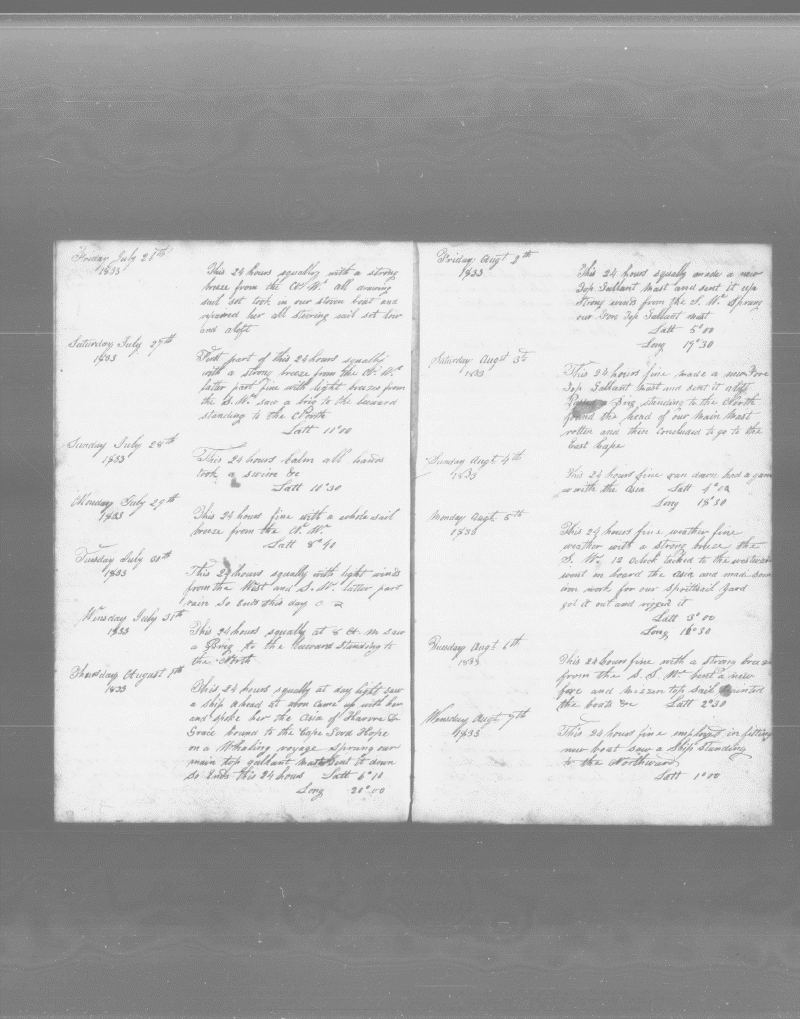 Friday July 26th
1833
This 24 hours squally with a strong
breeze from the W. all drawing
sail set took in our stern boat and
repaired her all steering sail set low
and aloft
Saturday July 27th
1833
First part of this 24 hours squally
with a strong breeze from the
latter part fine with light breezes from
the S.W. saw a brig to the leeward
standing to the North
Latt 11°00
Sunday July 28th
1833
This 24 hours Calm all hands
took a swim &c
Latt 11°30
Monday July 29th
1833
This 24 hours fine with a whole sail
breeze from the
Latt 8°40
Tuesday July 30th
1833
This 24 hours squally with light winds
from the West and S.W. latter part
rain So Ends this day
Wensday July 31th
1833
This 24 hours squally at 8 A.M saw
a Brig to the leeward standing to
the North
Thursday August 1th
1833
This 24 hours squally at day light saw
a Ship ahead at noon came up with her
and spoke her the Asia of Havre De
Grace bound to the Cape Good Hope
on a Whaling voyage Sprung our
main top gallant mast sent it down
So Ends this 24 hours Latt 6°10
Long 20°00
Friday Augt 2th
1833
This 24 hours squally made a new
Top Gallant Mast and sent it up
Strong winds from the S. W. Sprung
our Fore Top Gallant mast
Latt 5°00
Long 19°30
Saturday Augst 3th
1833
This 24 hours fine made a new Fore
Top Gallant Mast and sent it aloft
Brig standing to the North
found the head of our Main Mast
rotten and then concluded to go to the
East Cape
Sunday Augt 4th
1833
This 24 hours fine ran down had a gam
with the Asia Latt 4°02
Long 18°30
Monday Augt 5th
1833
This 24 hours fine weather fine
weather with a strong breeze the
S. W. 12 Oclock tacked to the westward
went on board the Asia and made som
iron work for our Spritsail Yard
got it out and rigged it
Latt 3°00
Long 16°30
Tuesday Augt 6th
1833
This 24 hours fine with a strong breeze
from the S. S. W. bent a new
fore and mizzen top sail painted
the boats &c Latt 2°30
Wensday Augt 7th
1833
This 24 hours fine employed in fitting
new boat saw a Ship standing
to the Northward
Latt 1°00